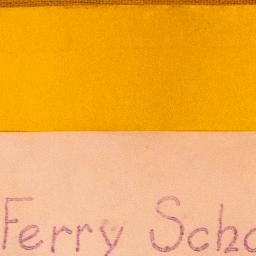 Ferry Scho